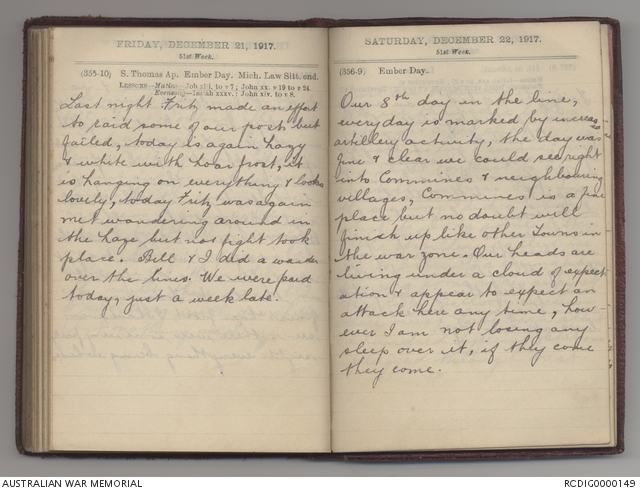 FRIDAY, DECEMBER 21, 1917.
51st Week.
(355-10) S. Thomas Ap. Ember Day. Mich. Law Sitt. end.
LESSONS—Matins—Job xlii. to v 7; John xx. v 19 to v 24.
Evensong—Isaiah xxxv.; John xiv. to v 8.
Last night Fritz made an effort
to raid some of our posts but
failed, today is again hazy
& white with hoar frost, it
is hanging on everything & looks
lovely, today Fritz was again
met wandering around in
the haze but no fight took
place. Bill & I did a wander
over the lines. We were paid
today, just a week late.
SATURDAY, DECEMBER 22, 1917.
51st Week.
(356-9) Ember Day.
Our 8th day in the line,
everyday is marked by increased
artillery activity, the day was
fine & clear we could see right
into Commines & neighbouring
villages, Commines is a fine
place but no doubt will
finish up like other Towns in
the war zone. Our heads are
living under a cloud of expect
ation & appear to expect an
attack here any time, how
ever I am not losing any
sleep over it, if they come
they come.
AUSTRALIAN WAR MEMORIAL
RCDIG0000149